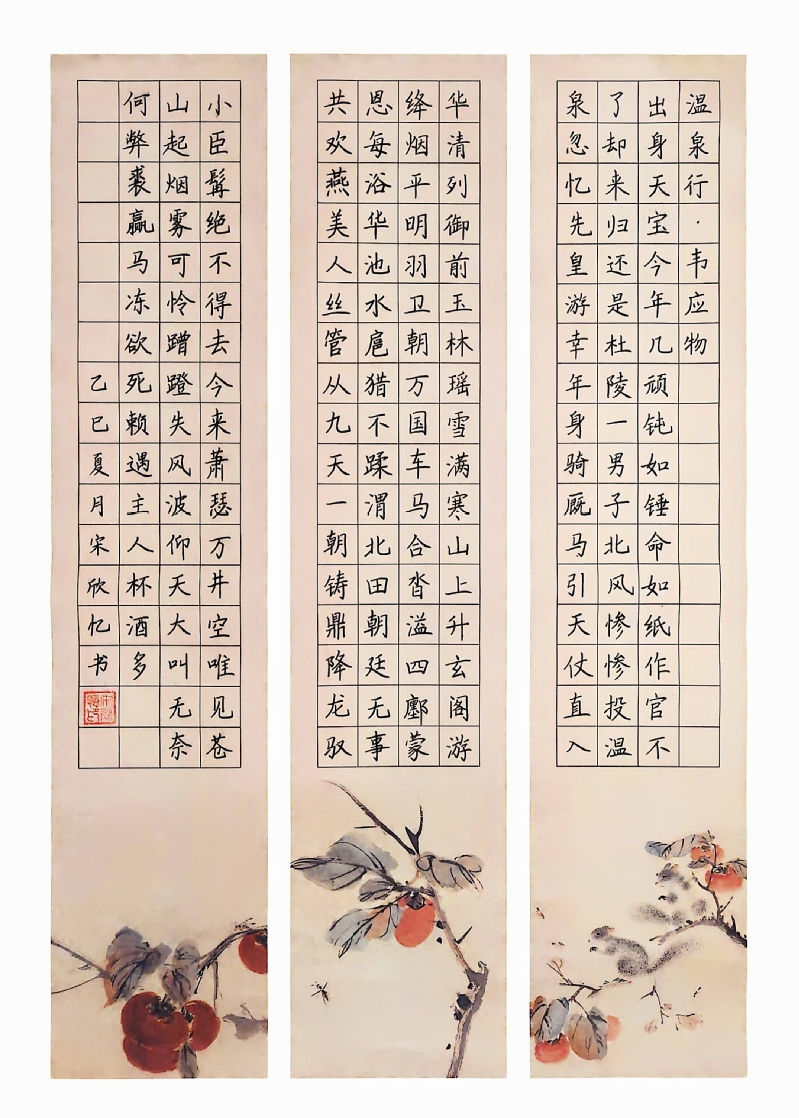 温泉行·韦应物
出身天宝今年几顽钝如锤命如纸作官不
了却来归还是杜陵一男子北风惨惨投温
泉忽忆先皇游幸年身骑厩马引天仗直入
华清列御前玉林瑶雪满寒山上升玄阁游
绛烟平明羽卫朝万国车马合沓溢四鄽蒙
恩每浴华池水扈猎不蹂渭北田朝廷无事
共欢燕美人丝管从九天一朝铸鼎降龙驭
小臣髯绝不得去今来萧瑟万井空唯见苍
山起烟雾可怜蹭蹬失风波仰天大叫无奈
何弊裘赢马冻欲死赖遇主人杯酒多
乙巳夏月宋欣忆书